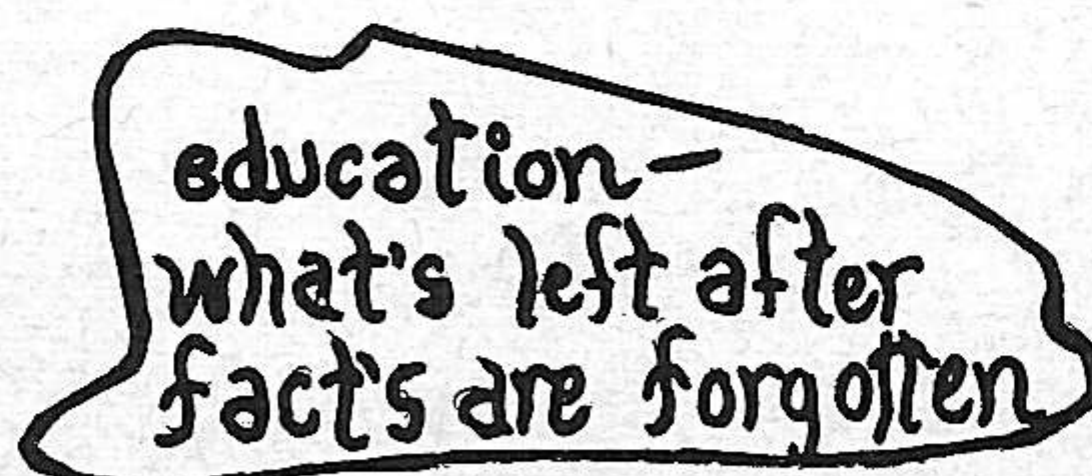 education–
what's left after
fact's are forgotten